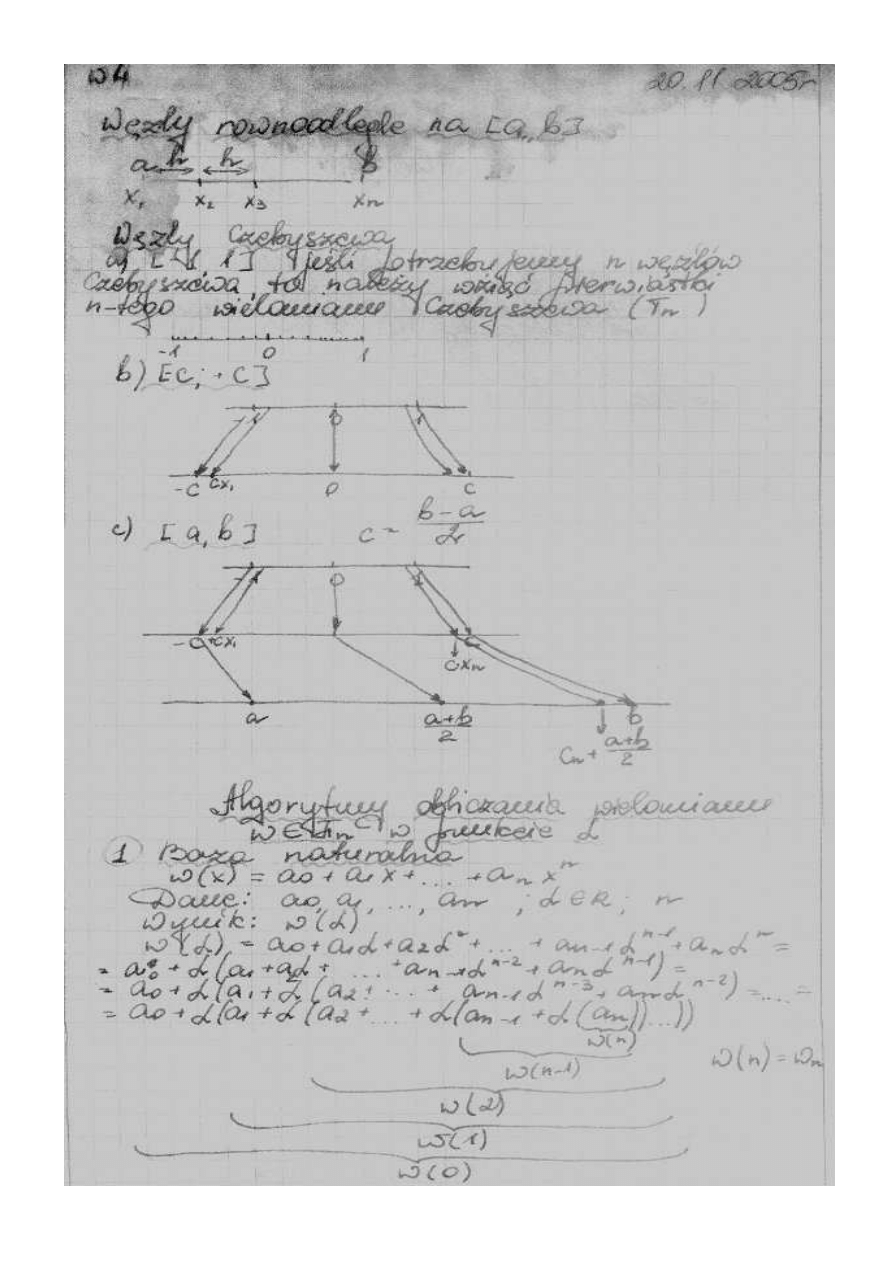 W4 20.11 2005r
Węzły rownoodległe na [a, b]
a h h b
x₁ x₂ x₃ xₙ
Węzły Czebyszewa
a) [-1 1] jeśli potrzebujemy n węzłów
Czebyszewa, to należy wziąść pierwiastki
n-tego wielomianu Czebyszewa (Tₙ)
-1 0 1
b) [-C; +C]
-1 0 1
-C Cx₁ 0 C
c) [a, b] c = (b-a)/2
-1 0 1
-C +Cx₁ C
Cxₙ
a (a+b)/2 b
Cₙ + (a+b)/2
Algorytmy obliczania wielomianu
w ∈ Πₙ w punkcie α
1 Baza naturalna
w(x) = a₀ + a₁x + ... + aₙxⁿ
Dane: a₀, a₁, ..., aₙ ; α ∈ R ; n
Wynik: w(α)
w(α) = a₀ + a₁α + a₂α² + ... + aₙ₋₁αⁿ⁻¹ + aₙαⁿ =
= a₀ + α(a₁ + a₂α + ... + aₙ₋₁αⁿ⁻² + aₙαⁿ⁻¹) =
= a₀ + α(a₁ + α(a₂ + ... + aₙ₋₁αⁿ⁻³ + aₙαⁿ⁻²) = .... =
= a₀ + α(a₁ + α(a₂ + ... + α(aₙ₋₁ + α(aₙ))...))
w(n)
w(n-1) w(n) = wₙ
w(2)
w(1)
w(0)